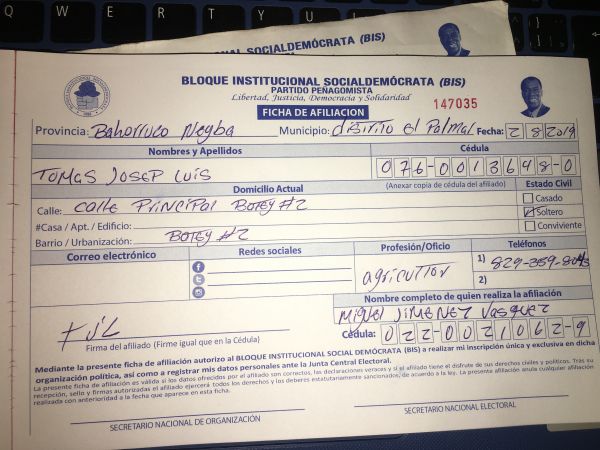 Q W E R T Y U
CIONAL SOCIALDEMÓCRATA (BIS)
BLOQUE INSTITUCIONAL SOCIALDEMÓCRATA (BIS)
PARTIDO PEÑAGOMISTA
Libertad, Justicia, Democracia y Solidaridad
FICHA DE AFILIACION
147035
Provincia: Bahorruco Neyba Municipio: distrito el Palmar Fecha: 2 8 2019
Nombres y Apellidos Cédula
TOMAS JOSEP LUIS 076-0013648-0
Domicilio Actual (Anexar copia de cédula del afiliado) Estado Civil
Calle: calle Principal Botey #2 Casado
#Casa / Apt. / Edificio: Soltero
Barrio / Urbanización: Botey #2 Conviviente
Correo electrónico Redes sociales Profesión/Oficio Teléfonos
agricultor 1) 829-359-8043
2)
Nombre completo de quien realiza la afiliación
Miguel Jimenez Vasquez
Firma del afiliado (Firme igual que en la Cédula) Cédula: 022-0021062-9
Mediante la presente ficha de afiliación autorizo al BLOQUE INSTITUCIONAL SOCIAL DEMÓCRATA (BIS) a realizar mi inscripción única y exclusiva en dicha
organización política, así como a registrar mis datos personales ante la Junta Central Electoral.
La presente ficha de afiliación es válida si los datos ofrecidos por el afiliado son correctos, las declaraciones veraces y si el afiliado tiene el disfrute de sus derechos civiles y políticos. Tras su
recepción, sello y firmas autorizadas el afiliado ejercerá todos los derechos y los deberes estatutariamente sancionados, de acuerdo a la ley. La presente afiliación anula cualquier afiliación
realizada con anterioridad a la fecha que aparece en esta ficha.
SECRETARIO NACIONAL DE ORGANIZACIÓN SECRETARIO NACIONAL ELECTORAL